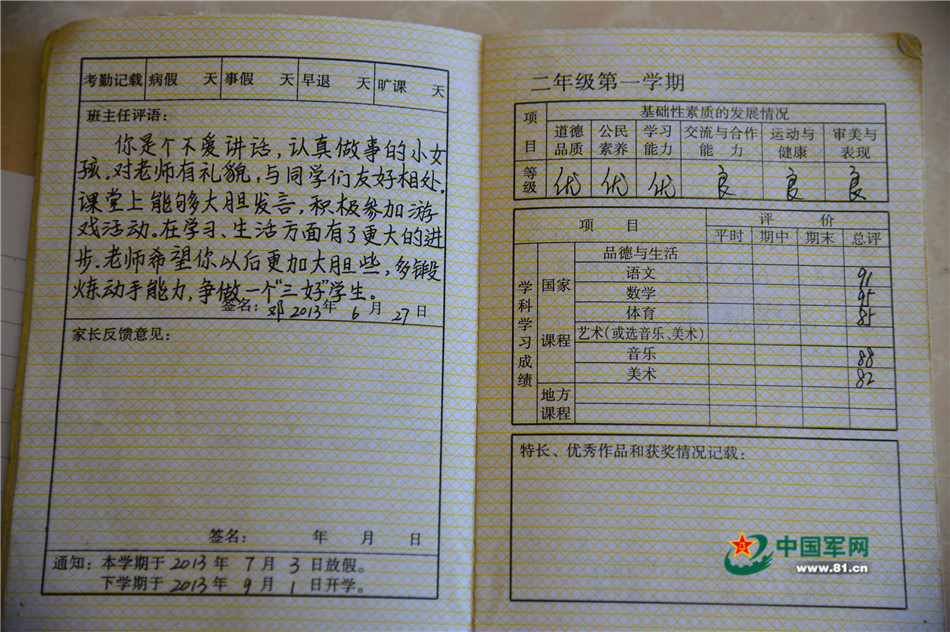 考勤记载 病假 天 事假 天 早退 天 旷课 天
班主任评语：
你是个不爱讲话，认真做事的小女
孩。对老师有礼貌，与同学们友好相处。
课堂上能够大胆发言，积极参加游
戏活动。在学习、生活方面有了更大的进
步。老师希望你以后更加大胆些，多锻
炼动手能力，争做一个“三好”学生。
签名：邓 2013年 6月 27日
家长反馈意见：
签名： 年 月 日
通知：本学期于 2013 年 7 月 3 日放假。
下学期于 2013 年 9 月 1 日开学。
二年级第一学期
项目 基础性素质的发展情况
道德品质 公民素养 学习能力 交流与合作能力 运动与健康 审美与表现
等级 优 优 优 良 良 良
项 目 评 价
平时 期中 期末 总评
学科学习成绩
国家课程
品德与生活
语文 91
数学 95
体育 85
艺术（或选音乐、美术）
音乐 88
美术 82
地方课程
特长、优秀作品和获奖情况记载：
中国军网
www.81.cn